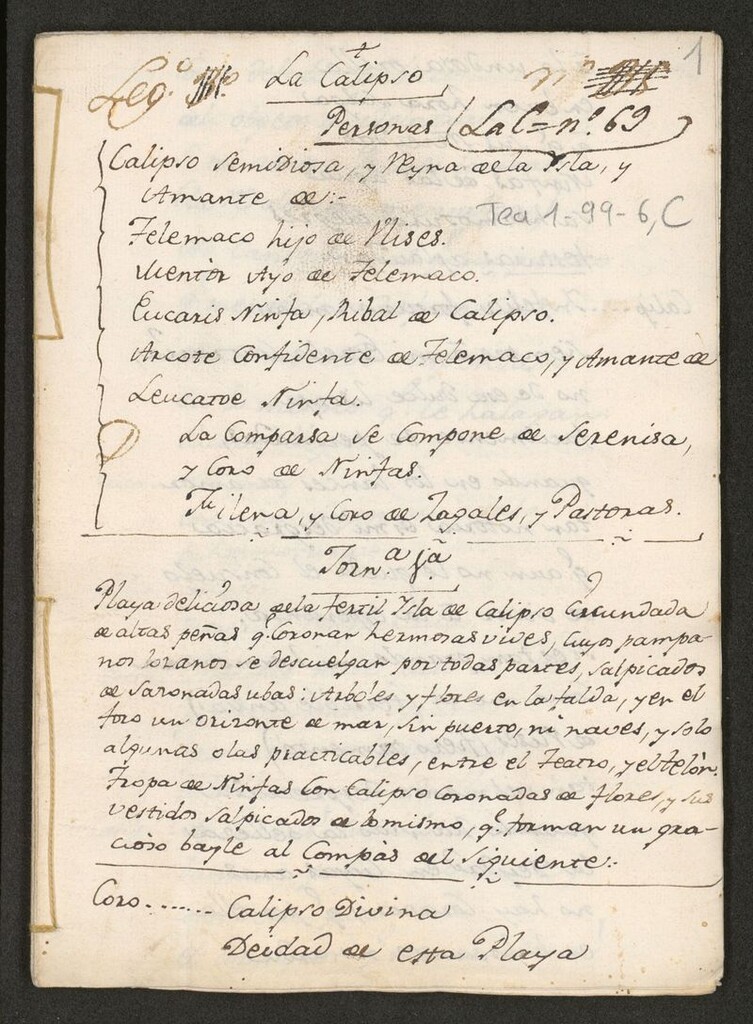 1
Leg.º
La Calipso
Personas (La C= n.º 69
Calipso semidiosa, y Reyna de la Isla, y
Amante de:-
Tea 1-99-6, C
Telemaco hijo de Ulises.
Mentòr Ayo de Telemaco.
Eucaris Ninfa, Ribal de Calipso.
Arcote Confidente de Telemaco, y Amante de
Leucatoe Ninfa.
La Comparsa se Compone de Serenisa,
y Coro de Ninfas.
Milena, y Coro de Zagales, y Pastoras.
Jorn.ª 1.ª
Playa deliciosa de la fertil Isla de Calipso Circundada
de altas peñas q.e Coronan hermosas vides, Cuyos pampa-
nos lozanos se descuelgan por todas partes, salpicados
de sazonadas ubas: Arboles y flores en la falda, y en el
foro un orizonte de mar, sin puerto, ni naves, y solo
algunas olas practicables, entre el Teatro, y el telòn.
Tropa de Ninfas Con Calipso Coronadas de flores, y sus
vestidos salpicados de lo mismo, q.e forman un gra-
cioso bayle al Compàs del siguiente:-
Coro...... Calipso Divina
Deidad de esta Playa